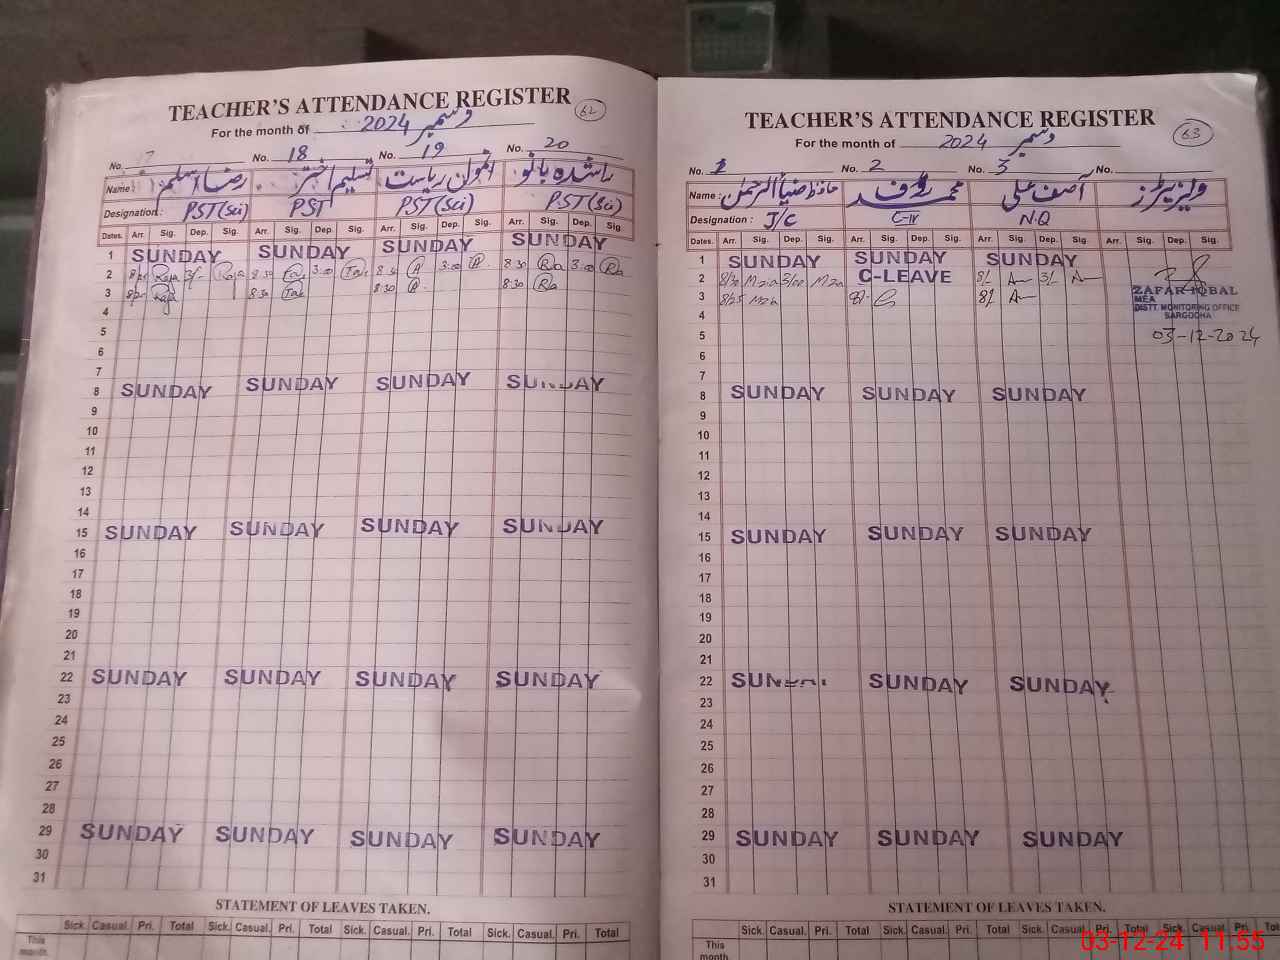 TEACHER'S ATTENDANCE REGISTER 62
For the month of دسمبر 2024
No. 17 No. 18 No. 19 No. 20
Name رضا اسلم تسلیم اختر ایمان ریاست راشدہ بانو
Designation: PST(Sci) PST PST(Sci) PST(Sci)
Dates. Arr. Sig. Dep. Sig. Arr. Sig. Dep. Sig. Arr. Sig. Dep. Sig. Arr. Sig. Dep. Sig.
1 SUNDAY SUNDAY SUNDAY SUNDAY
2 8:30 3:00 8:30 3:00 8:30 3:00
3 8:30 8:30 8:30
4
5
6
7
8 SUNDAY SUNDAY SUNDAY SUNDAY
9
10
11
12
13
14
15 SUNDAY SUNDAY SUNDAY SUNDAY
16
17
18
19
20
21
22 SUNDAY SUNDAY SUNDAY SUNDAY
23
24
25
26
27
28
29 SUNDAY SUNDAY SUNDAY SUNDAY
30
31
STATEMENT OF LEAVES TAKEN.
Sick. Casual. Pri. Total Sick. Casual. Pri. Total Sick. Casual. Pri. Total Sick. Casual. Pri. Total
This month.
TEACHER'S ATTENDANCE REGISTER 63
For the month of دسمبر 2024
No. 1 No. 2 No. 3 No.
Name: حافظ ضیاالرحمن محمد رؤف آصف علی وزیٹرز
Designation: J/C C-IV N.Q
Dates. Arr. Sig. Dep. Sig. Arr. Sig. Dep. Sig. Arr. Sig. Dep. Sig. Arr. Sig. Dep. Sig.
1 SUNDAY SUNDAY SUNDAY
2 8/30 3/00 C-LEAVE 8/ 3/
3 8/25 8/
ZAFAR IQBAL
MEA
DISTT. MONITORING OFFICE
SARGODHA
03-12-2024
4
5
6
7
8 SUNDAY SUNDAY SUNDAY
9
10
11
12
13
14
15 SUNDAY SUNDAY SUNDAY
16
17
18
19
20
21
22 SUNDAY SUNDAY SUNDAY
23
24
25
26
27
28
29 SUNDAY SUNDAY SUNDAY
30
31
STATEMENT OF LEAVES TAKEN.
Sick. Casual. Pri. Total Sick. Casual. Pri. Total Sick. Casual. Pri. Total Sick. Casual. Pri.
This month
03-12-24 11.55